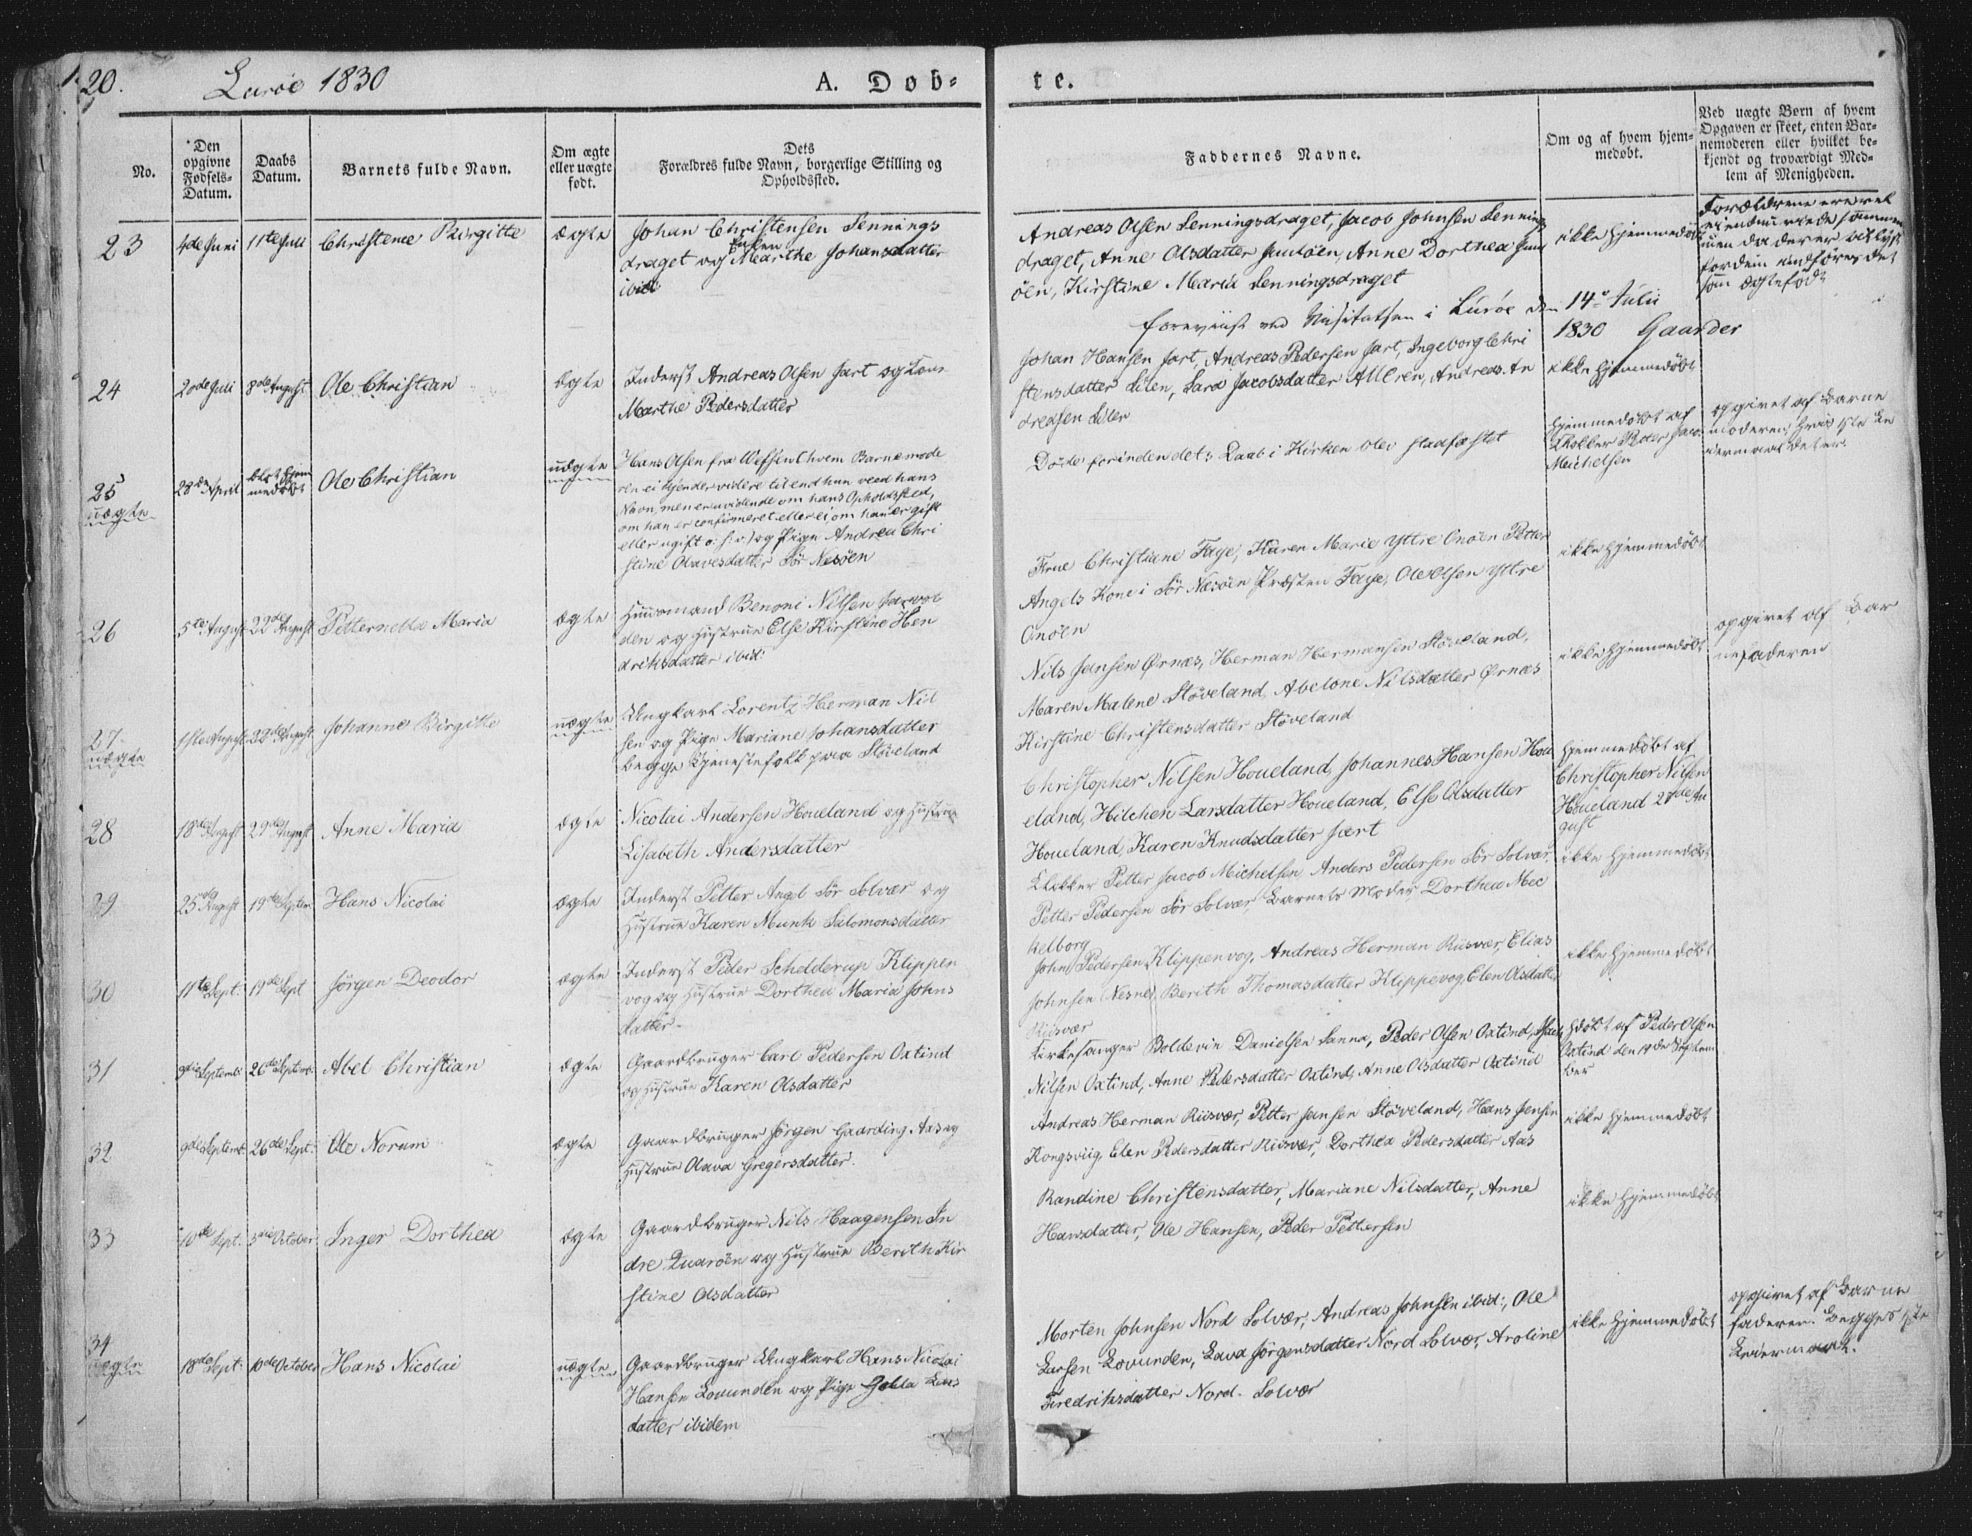 20.
Lurøe 1830
A. Døb-
te.
No.
Den
opgivne
Fødsels-
Datum.
Daabs
Datum.
Barnets fulde Navn.
Om ægte
eller uægte
født.
Dets
Forældres fulde Navn, borgerlige Stilling og
Opholdssted.
Faddernes Navne.
Om og af hvem hjem-
medøbt.
Ved uægte Børn af hvem
Opgaven er skeet, enten Bar-
nemoderen eller hvilket be-
kjendt og troværdigt Med-
lem af Menigheden.
23
4de Juni
11te Juli
Christence Birgitte
ægte
Johan Christensen Lennings
draget og Enken Marthe Johansdatter
ibid
Andreas Olsen Lenningsdraget, Jacob Johnsen Lennings
draget, Anne Olsdatter, Anne Dorthea
öen, Kirstine Maria Lenningsdraget
ikke hjemmedøbt
Forældrene ere vel
ei endnu viede sammen
men da der er tillyst
for dem anføres det
som ægtefødt
foreviist ved Visitatsen i Lurøe den 14de Julii
1830 Gaarder
24
20de Juli
8de August
Ole Christian
ægte
Inderst Andreas Olsen Sart og Kone
Marthe Pedersdatter
Johan Hansen Sart, Andreas Pedersen Sart, Ingeborg Chri
stensdatter Lilen, Sara Jacobsdatter, Andreas An
dreasen Lilen
ikke hjemmedøbt
25
uægte
28de April
blot hjem
medøbt
Ole Christian
uægte
Hans Olsen fra Vefsen (hvem Barnemode
ren ei kjender videre til end hun veed hans
Navn, men er uvidende om hans Opholdssted,
om han er confirmeret eller ei om han er gift
eller ugift o: s: v:) og Pige Andrea Chri
stine Olavesdatter Sör Nesöen
Døde forinden dets Daab i Kirken blev stadfæstet
hjemmedøbt af
Klokker Petter Jacob
Michelsen
opgivet af Barne
moderen, hvis 1ste Le
iermaal det er.
26
5te August
22de August
Petternella Maria
ægte
Huusmand Benoni Nilsen
den og Hustrue Else Kirstine Hen
driksdatter ibid:
Frue Christiane Faye, Karen Marie Yttre Onöen Petter
Angels Kone i Sör Nesöen Præsten Faye, Ole Olsen Yttre
Onöen
ikke hjemmedøbt
27.
uægte
11te August
22de August
Johanne Birgitte
uægte
Ungkarl Lorentz Herman Nil
sen og Pige Mariane Johansdatter
begge Tjenestefolk paa Støveland
Nils Jensen Ørnæs, Herman Hermansen Støveland,
Maren Malene Støveland Abelone Nilsdatter Ørnæs
Kirstine Christensdatter Støveland
ikke hjemmedøbt
opgivet af Bar
nefaderen
28
18de August
29de August
Anne Maria
ægte
Nicolai Andersen Houeland og Hustrue
Lisabeth Andersdatter
Christopher Nilsen Houeland, Johannes Hansen Hou
eland, Hilchen Larsdatter Houeland, Else Olsdatter
Houeland, Karen Knudsdatter Sært
hjemmedøbt af
Christopher Nilsen
Houeland 21de Au
gust
29
25de August
19de Septem.
Hans Nicolai
ægte
Inderst Petter Angel Sör Solvær og
Hustrue Karen Munk Salomonsdatter
Klokker Petter Jacob Michelsen, Anders Pedersen Sör Solvær,
Petter Pedersen Sör Solvær, Barnets Moder, Dorthea Mec
kelborg
ikke hjemmedøbt
30
11te Sept.
19de Sept
Jörgen Deodor
ægte
Inderst Peder Schelderup Klippen
vog og Hustrue Dorthea Maria Johns
datter
John Pedersen Klippenvog, Andreas Herman Riisvær, Elias
Johnsen Nesne, Berith Thomasdatter Klippevog, Elen Olsdatter
Riisvær
ikke hjemmedøbt
31
Septemb:
26de Septemb.
Abel Christian
ægte
Gaardbruger Carl Pedersen Oxtind
og Hustrue Karen Olsdatter
Kirkesanger Boldevin Danielsen Sanna, Peder Olsen Oxtind,
Nilsen Oxtind, Anne Pedersdatter Oxtind, Anne Olsdatter Oxtind
hdøbt af Peder Olsen
Oxtind den 19de Septem
ber
32
9de Septemb.
26de Sept.
Ole Norum
ægte
Gaardbruger Jörgen Gaarding Aas og
Hustrue Olava Gregersdatter.
Andreas Herman Riisvær, Petter Jansen Støveland, Hans Jensen
Kongsviig Elen Pedersdatter Riisvær, Dorthea Pedersdatter Aas
ikke hjemmedøbt
33
10de Sept.
3die October
Inger Dorthea
ægte
Gaardbruger Nils Haagensen In
dre Quarøen og Hustrue Berith Kir
stine Olsdatter
Randine Christensdatter, Mariane Nilsdatter, Anne
Hansdatter, Ole Hansen, Peder Pettersen
ikke hjemmedøbt
34
uægte
18de Sept:
10de October
Hans Nicolai
uægte
Gaardbruger Ungkarl Hans Nicolai
Hansen Lovunden og Pige Golla Lars
datter ibidem
Morten Johnsen Nord Solvær, Andreas Johnsen ibid:, Ole
Larsen Lovunden, Lava Jörgensdatter Nord Solvær, Aroline
Fredriksdatter Nord-Solvær
ikke hjemmedøbt
opgivet af Barne
faderen. Begges 1ste
Leiermaal.